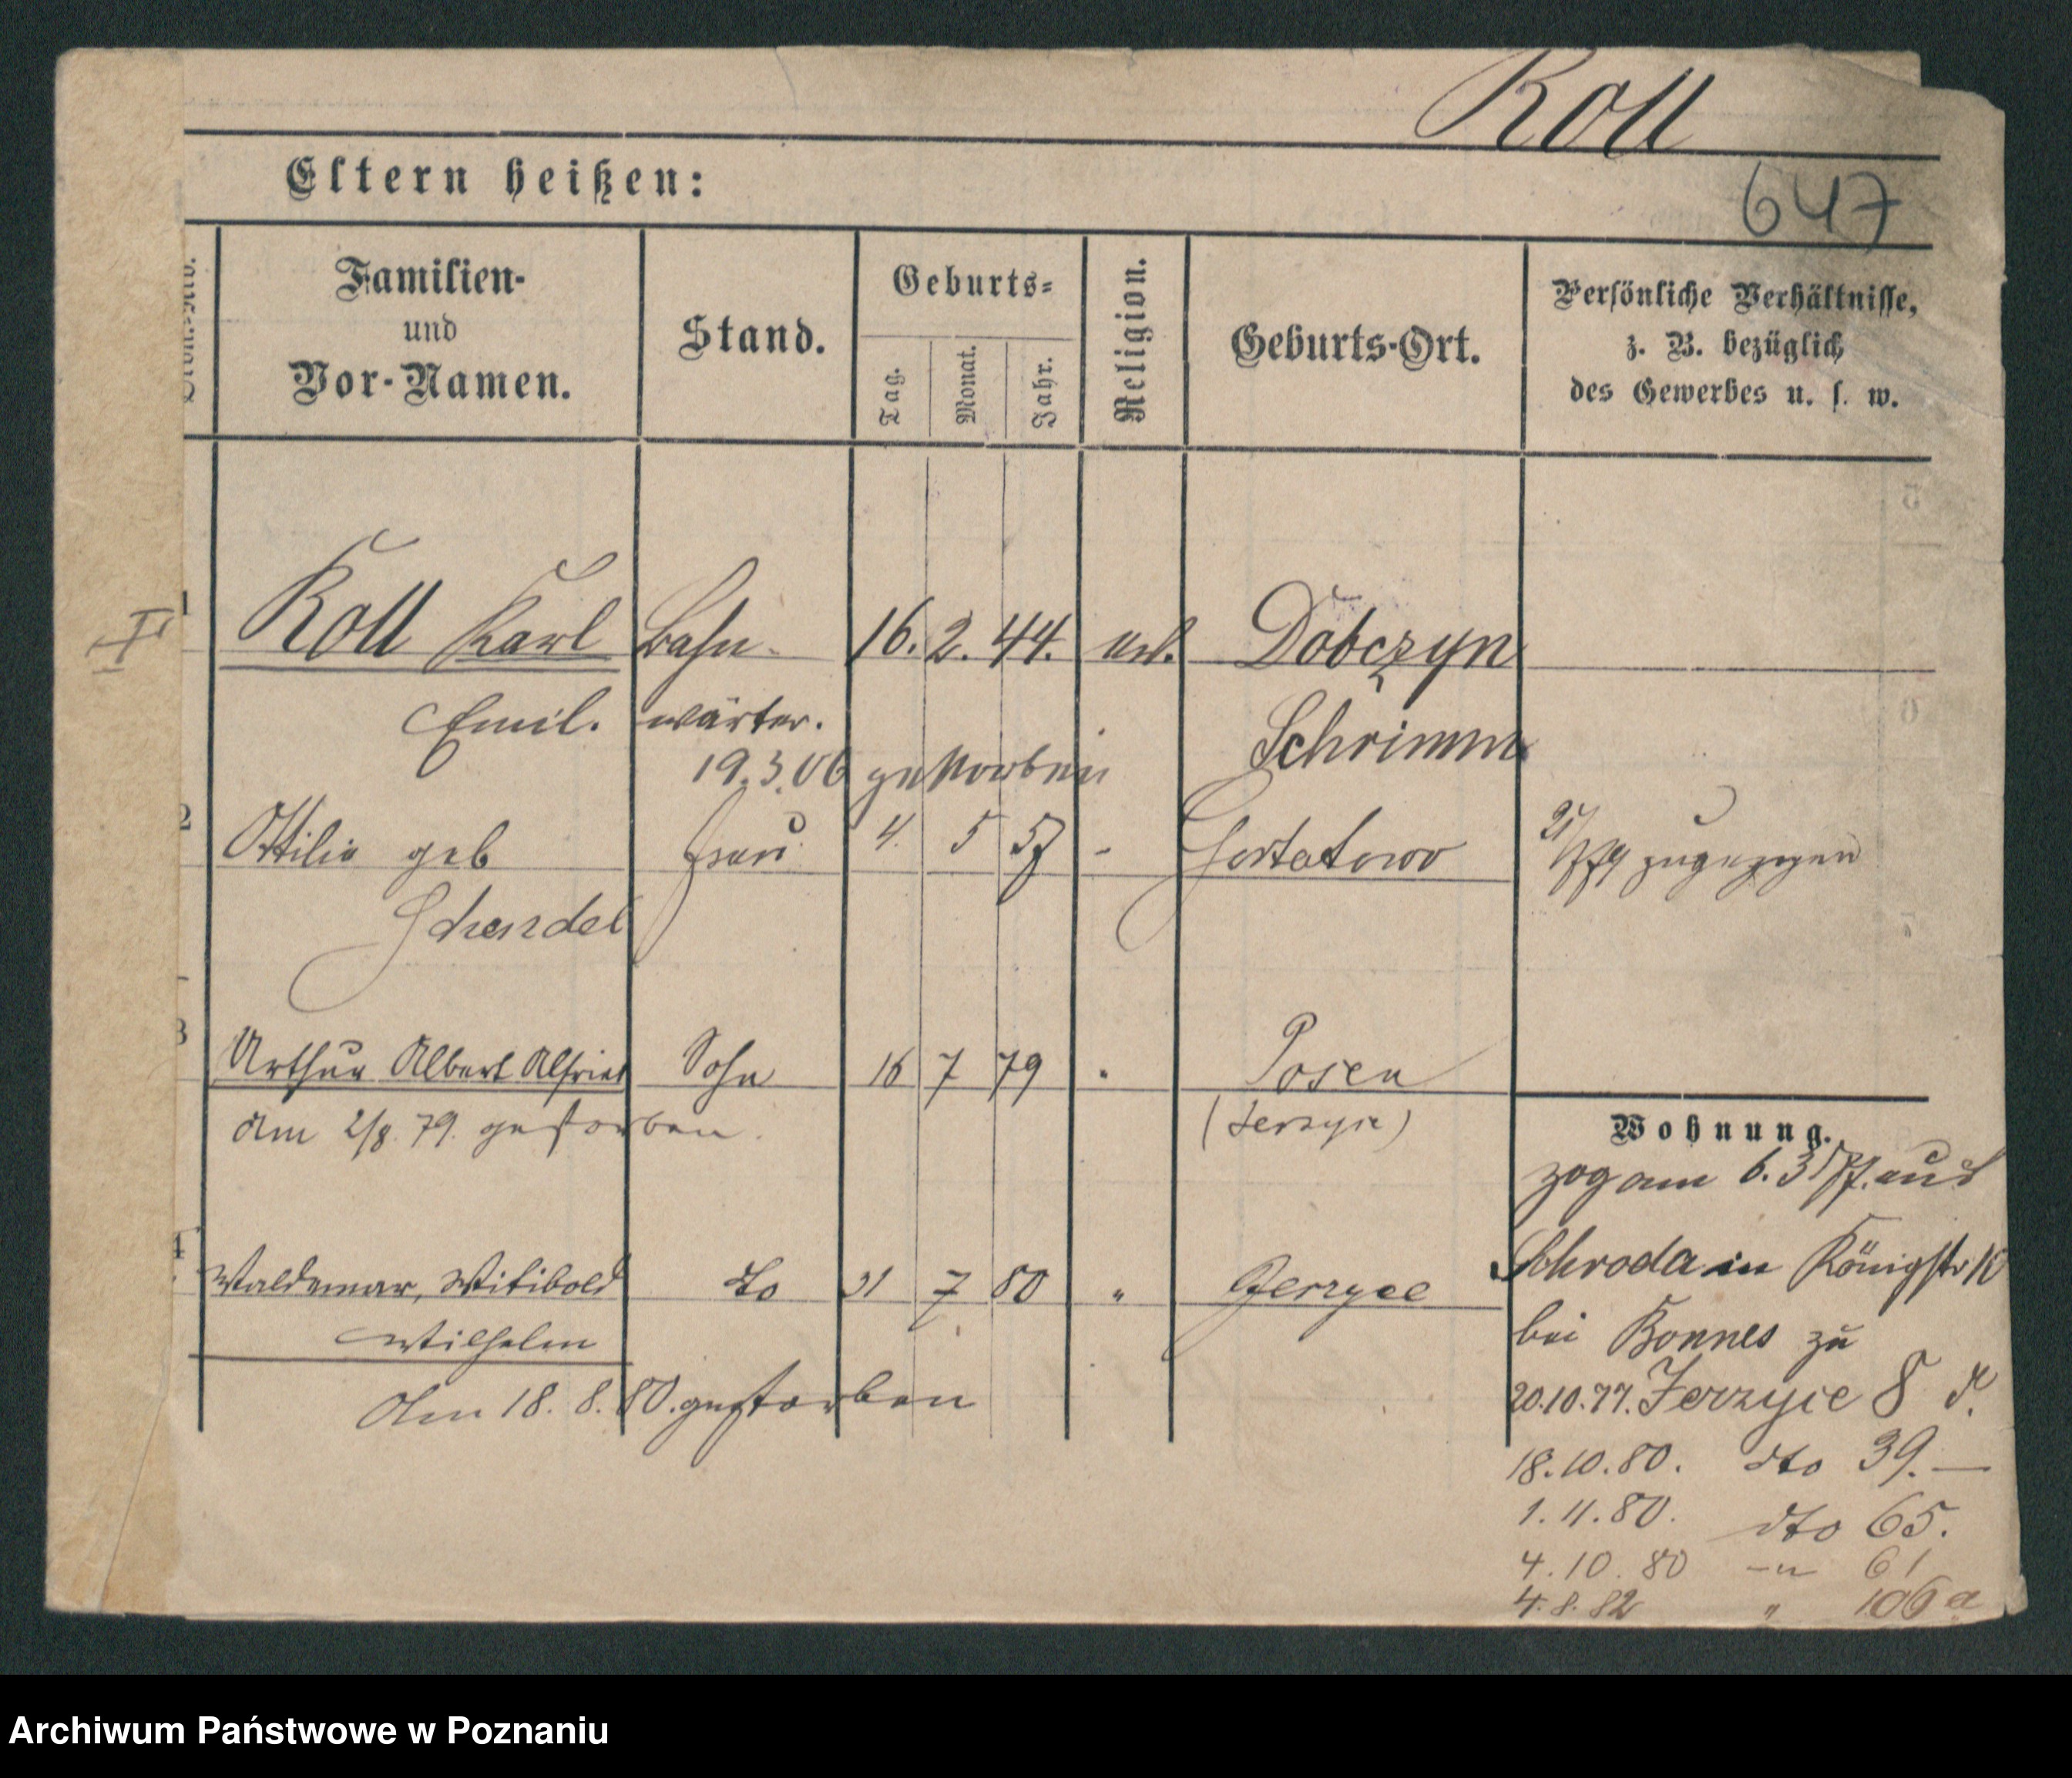 Roll
647
Eltern heißen:
Familien-
und
Vor-Namen.
Stand.
Geburts-
Tag.
Monat.
Jahr.
Religion.
Geburts-Ort.
Persönliche Verhältnisse,
z. B. bezüglich
des Gewerbes u. s. w.
I
1
Roll Karl Bahn- 16. 2. 44. Dobczyn
Emil. wärter. Schrimm
19.3.06 gestorben
2
Ottilie geb Frau 4. 5 57 - Gortatowo zugezogen
Schendel
3
Arthur Albert Alfried Sohn 16 7 79 " Posen
am 2/8. 79. gestorben. (Jerzyce)
4
Waldemar, Witibold dto 31 7 80 " Jerzyce
Wilhelm
Am 18. 8. 80. gestorben
Wohnung.
zog am 6. 3 77. aus
Schroda in Königstr
bei Bonnes zu
20.10.77. Jerzyce 8
18.10.80. dto 39. —
1. 11. 80. dto 65.
4. 10. 80 -"- 61
4. 8. 82 " 106 a
Archiwum Państwowe w Poznaniu